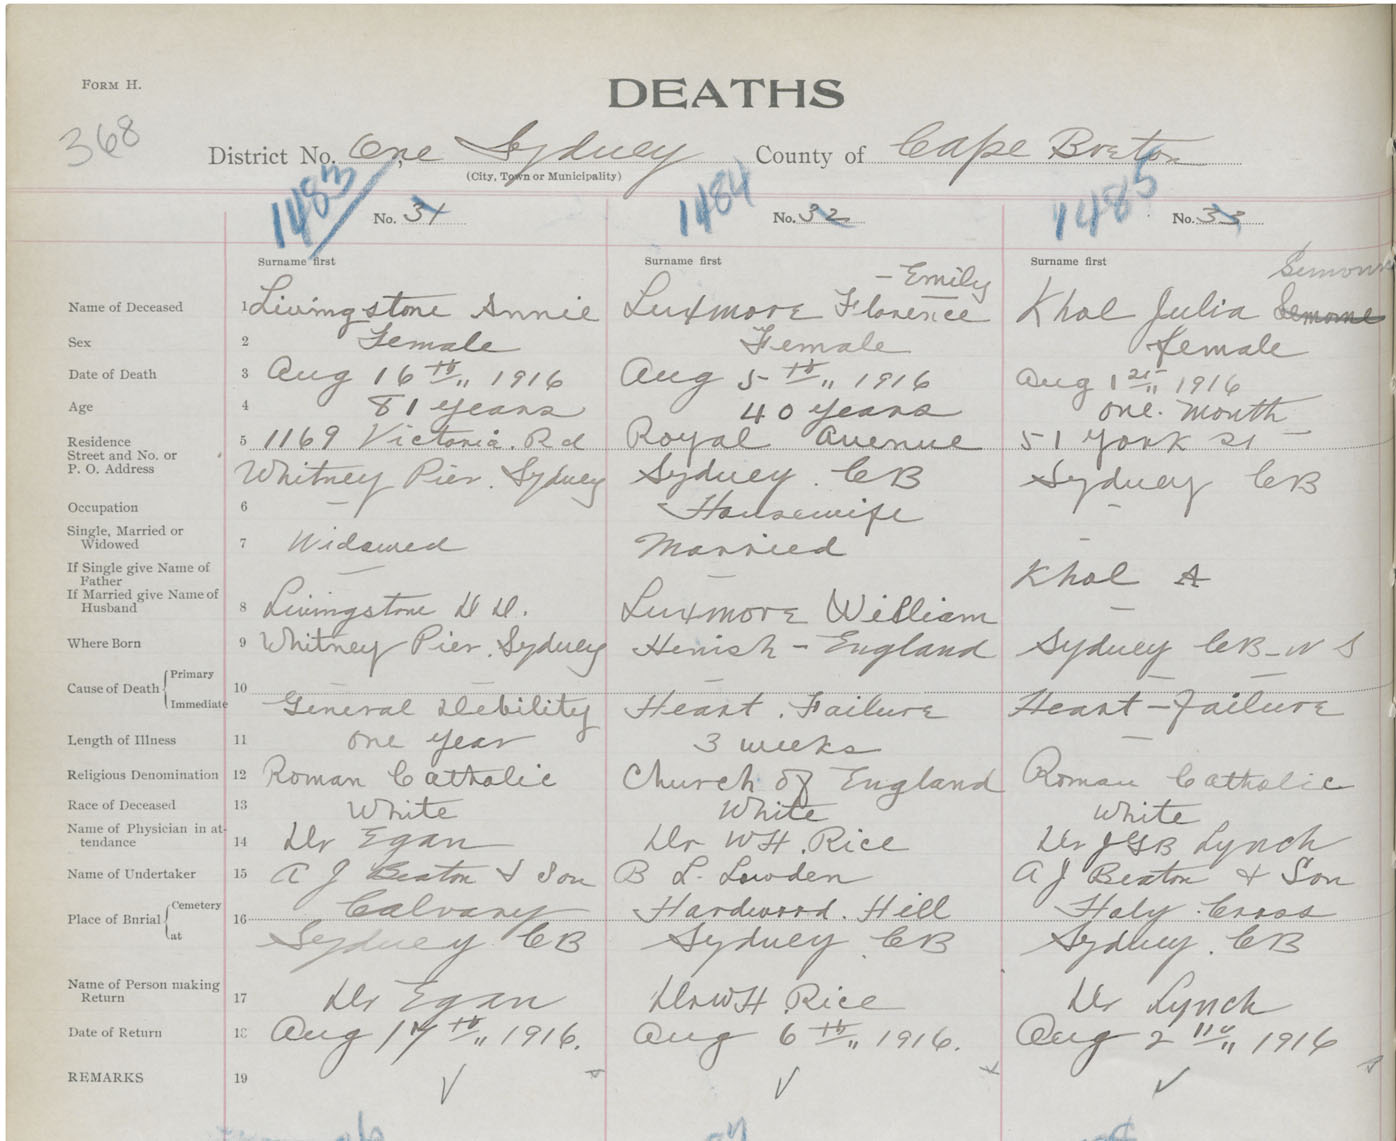 FORM H.
DEATHS
368
District No. One, Sydney County of Cape Breton
(City, Town or Municipality)
1483 1484 1485
No. 31 No. 32 No. 33
Surname first Surname first Surname first
- Emily
Name of Deceased 1 Livingstone Annie Luxmore Florence Khol Julia
Sex 2 Female Female female
Date of Death 3 Aug 16th 1916 Aug 5th 1916 Aug 1st 1916
Age 4 81 years 40 years one month
Residence 5 1169 Victoria Rd Royal Avenue 51 York St
Street and No. or
P. O. Address Whitney Pier. Sydney Sydney. CB Sydney CB
Occupation 6 - Housewife -
Single, Married or
Widowed 7 Widowed Married -
If Single give Name of
Father - - Khol A
If Married give Name of
Husband 8 Livingstone D D. Luxmore William -
Where Born 9 Whitney Pier. Sydney - England Sydney CB - N S
Cause of Death Primary 10 - - -
Immediate General Debility Heart Failure Heart-Failure
Length of Illness 11 one year 3 weeks -
Religious Denomination 12 Roman Catholic Church of England Roman Catholic
Race of Deceased 13 White White White
Name of Physician in at-
tendance 14 Dr Egan Dr WH. Rice Dr JGB Lynch
Name of Undertaker 15 A J Beaton & Son B L. Lowden A J Beaton & Son
Place of Burial Cemetery 16 Calvary Hardwood. Hill Holy Cross
at Sydney CB Sydney. CB Sydney. CB
Name of Person making
Return 17 Dr Egan Dr WH. Rice Dr Lynch
Date of Return 18 Aug 17th 1916. Aug 6th 1916. Aug 2nd 1916
REMARKS 19